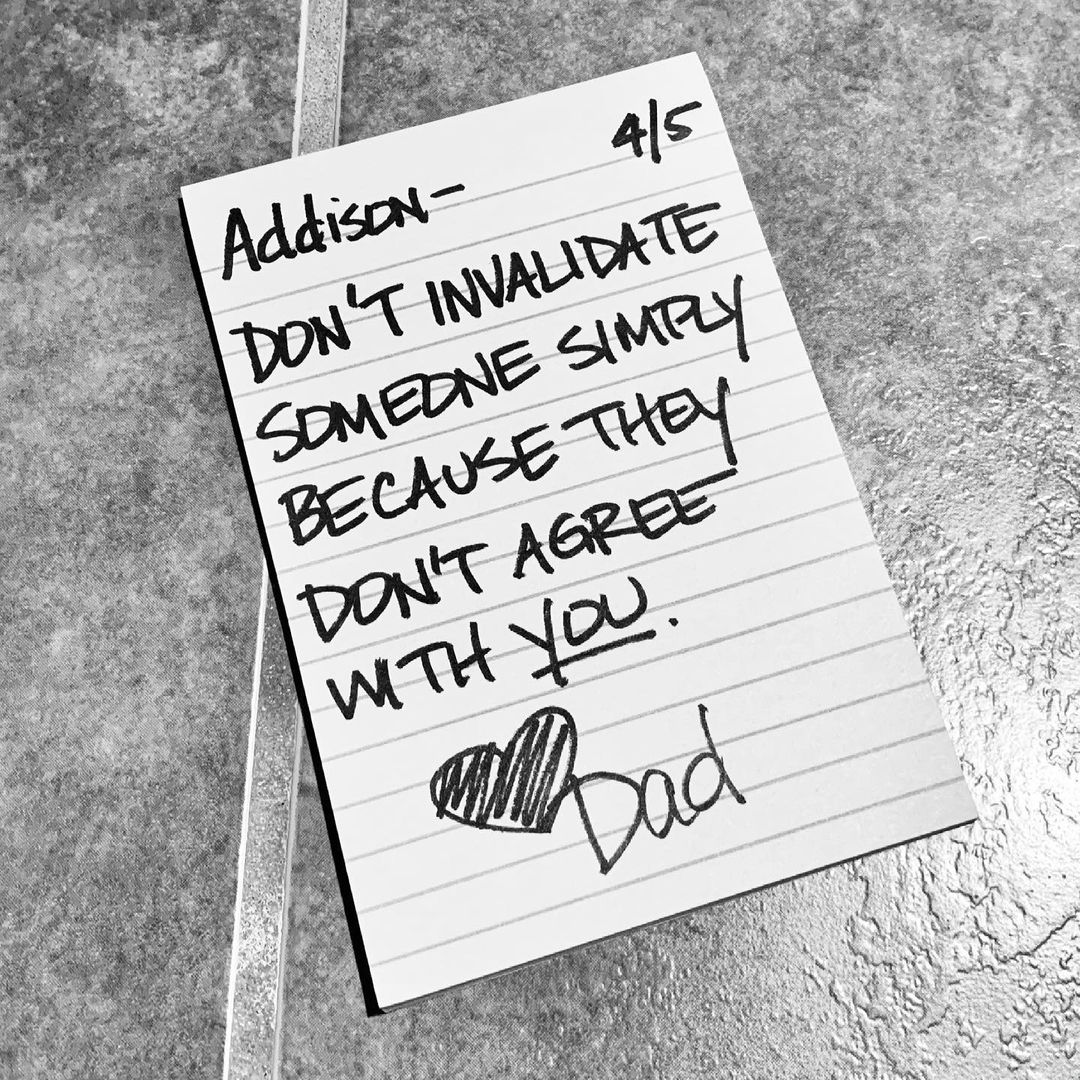 4/5
Addison-
DON'T INVALIDATE
SOMEONE SIMPLY
BECAUSE THEY
DON'T AGREE
WITH YOU.
Dad